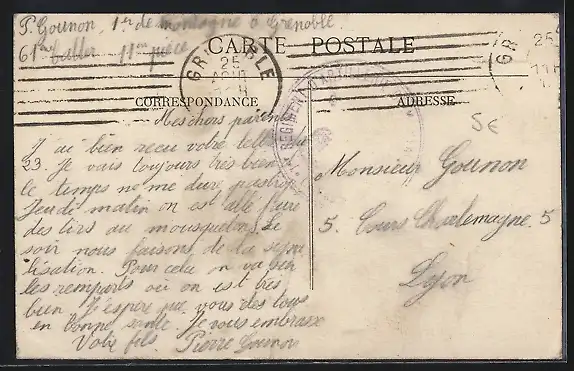 P. Gounon, 1er de montagne à Grenoble
61me batter 11me pièce
CARTE POSTALE
GRENOBLE
25
AOUT
GR
25
CORRESPONDANCE
ADRESSE
REGIMENT D'ARTILLERIE
5€
Mes chers parents
J'ai bien reçu votre lettre du
23. Je vais toujours très bien
le temps ne me dure pas trop
Jeudi matin on est allé faire
des tirs au mousqueton. Le
soir nous faisons de la signa
lisation. Pour cela on va sur
les remparts où on est très
bien J'espère que vous êtes tous
en bonne santé. Je vous embrasse
Votre fils. Pierre Gounon
Monsieur Gounon
5. Cours Charlemagne. 5
Lyon